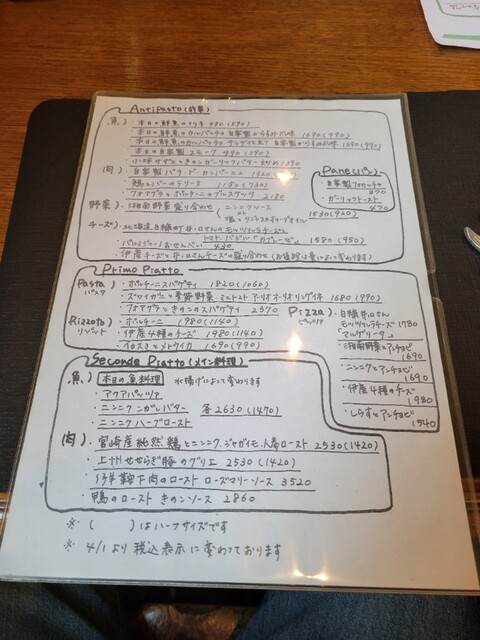 Antipasto(前菜)
魚)・本日の鮮魚のマリネ 990(590)
・本日の鮮魚のカルパッチョ 自家製からすみ風味 1690(990)
・本日の自家製スモーク 990(590)
肉)・自家製パテ・ド・カンパーニュ
・鶏とバーのテリーヌ 1180(730)
・フォアグラとポルチーニのブルスケッタ 2180
野菜)・湘南野菜盛り合わせ(ニンニクソース
or
塩とエクストラオリーブオイル
1530(920)
チーズ)・北海道白糠町井ノ口さんのモッツァレラチーズと
トマト バジル「カプレーゼ」 1580(950)
・パルミジャーノおせんべい 430
Pane(パン)
・自家製フォカッチャ
・ガーリックトースト
470
Primo Piatto
Pasta)
パスタ
・ポルチーニスパゲティ 1820(1060)
・ズワイガニと季節野菜・ミニトマト アーリオ・オーリオ 1680(990)
・フォアグラときのこのスパゲティ 2370
Rizzoto)
リゾット
・ポルチーニ 1980(1140)
・伊産4種のチーズ 1980(1140)
1690(990)
Pizza)
ピッツァ
・白糠井ノ口さん
モッツァレラチーズ 1780
マルゲリータ
・湘南野菜とアンチョビ
1690
・ニンニクとアンチョビ
1690
・伊産4種のチーズ
1980
・しらすとアンチョビ
1540
Secondo Piatto(メイン料理)
魚)本日の魚料理 水揚げによって変わります
・アクアパッツァ
・ニンニクアンチョビバター 各2630(1470)
・ニンニクハーブロースト
肉)・宮崎産純然鶏とニンニク、ジャガイモ、人参ロースト 2530(1420)
・上州せせらぎ豚のグリエ 2530(1420)
・仔羊鞍下肉のロースト ローズマリーソース 3520
・鴨のロースト きのこソース 2860
※( )はハーフサイズです
※ 4/1より税込表示に変わっております